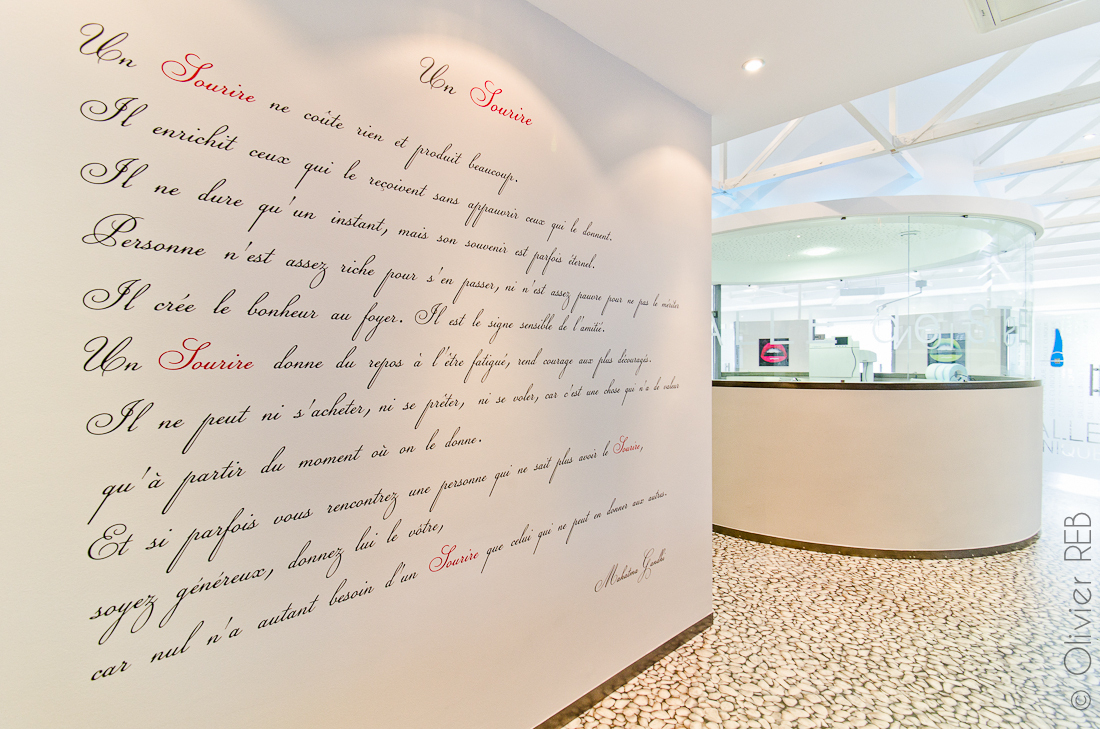 Un Sourire
Un Sourire ne coûte rien et produit beaucoup.
Il enrichit ceux qui le reçoivent sans appauvrir ceux qui le donnent.
Il ne dure qu'un instant, mais son souvenir est parfois éternel.
Personne n'est assez riche pour s'en passer, ni n'est assez pauvre pour ne pas le mériter
Il crée le bonheur au foyer. Il est le signe sensible de l'amitié.
Un Sourire donne du repos à l'être fatigué, rend courage aux plus découragés.
Il ne peut ni s'acheter, ni se prêter, ni se voler, car c'est une chose qui n'a de valeur
qu'à partir du moment où on le donne.
Et si parfois vous rencontrez une personne qui ne sait plus avoir le Sourire,
soyez généreux, donnez lui le vôtre,
car nul n'a autant besoin d'un Sourire que celui qui ne peut en donner aux autres.
Mahatma Gandhi
© Olivier REB